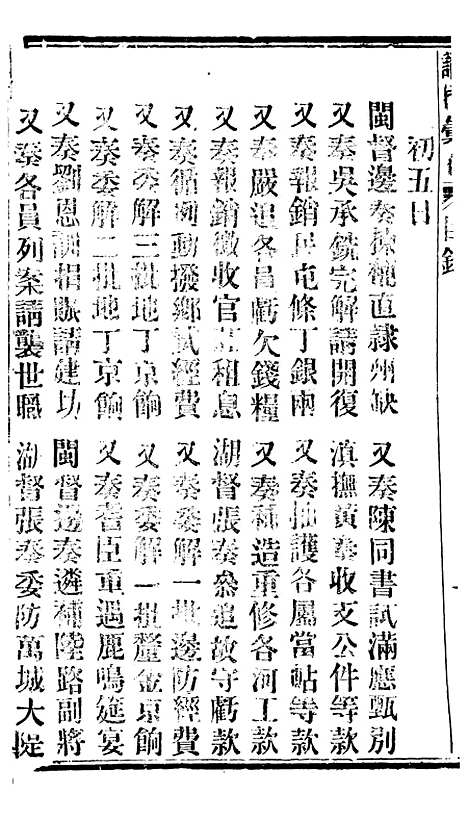 初五日
閩督邊奏揀補直隸州缺　又奏陳同書試滿應甄別
又奏吳承銑完解請開復　滇撫黃奏收支公件等款
又奏報銷民屯條丁銀兩　又奏拙護各屬當帖等款
又奏嚴追各員虧欠錢糧　又奏利造重修各河工款
又奏報銷徵收官莊租息　湖督張奏叅追故守虧款
又奏循例動撥鄉試經費　又奏委解一批邊防經費
又奏委解三批地丁京餉　又奏委解一批釐金京餉
又奏委解二批地丁京餉　又奏耆臣重遇鹿鳴筵宴
又奏劉恩訓捐賑請建坊　閩督邊奏遴補陸路副將
又奏各員列案請襲世職　湖督張奏委防萬城大隄